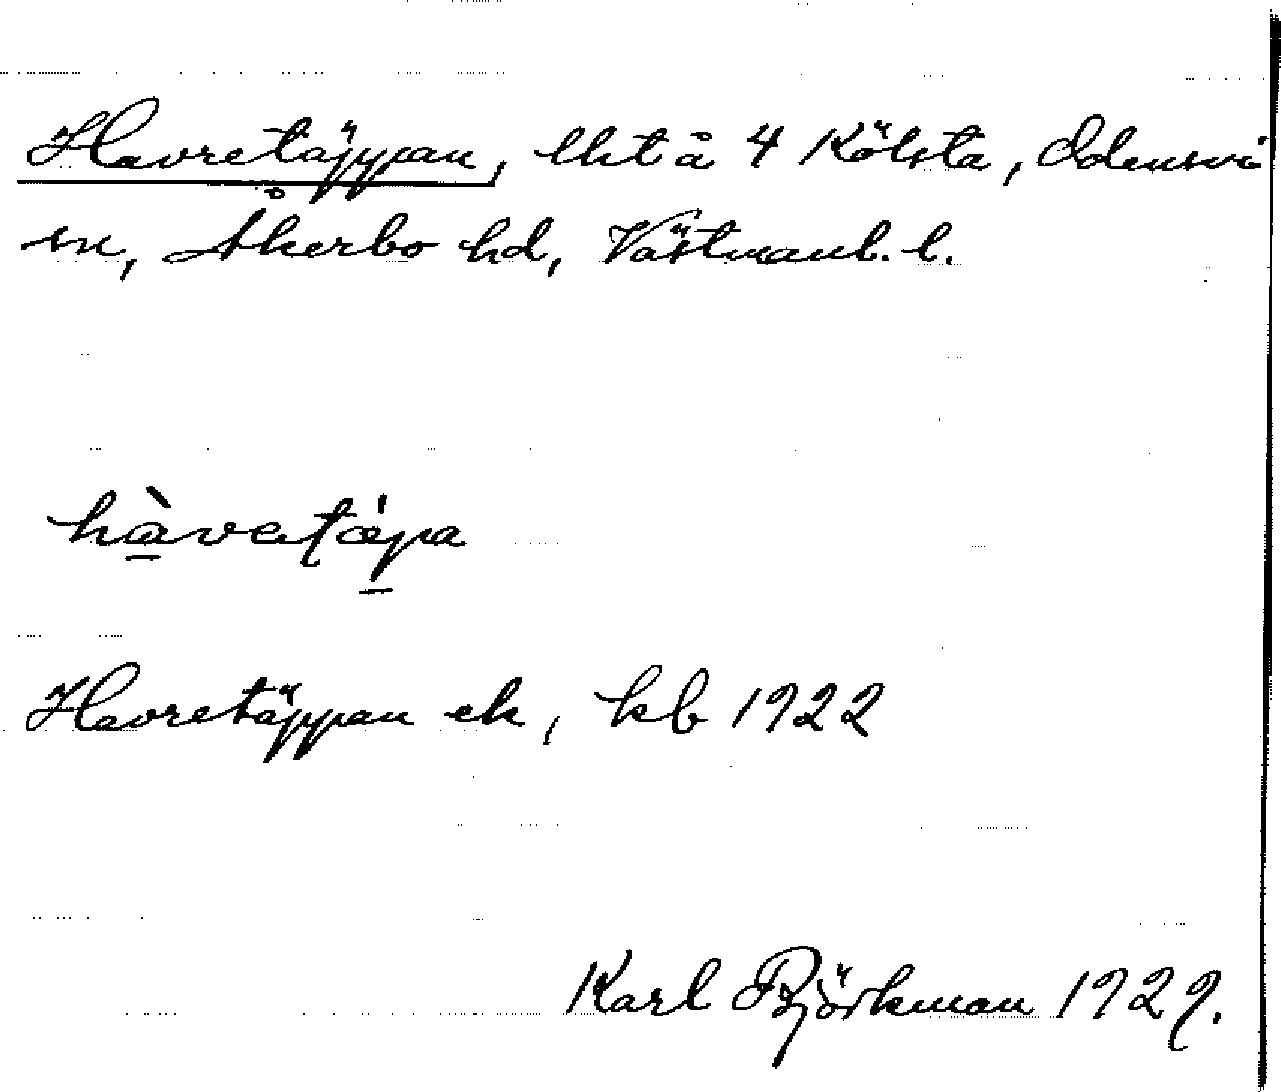 Havretäppan, lht å 4 Kölsta, Odensvi
sn, Åkerbo hd, Västmanl. l.
hàvetäpa
Havretäppan ek, kb 1922
Karl Björkman 1929.